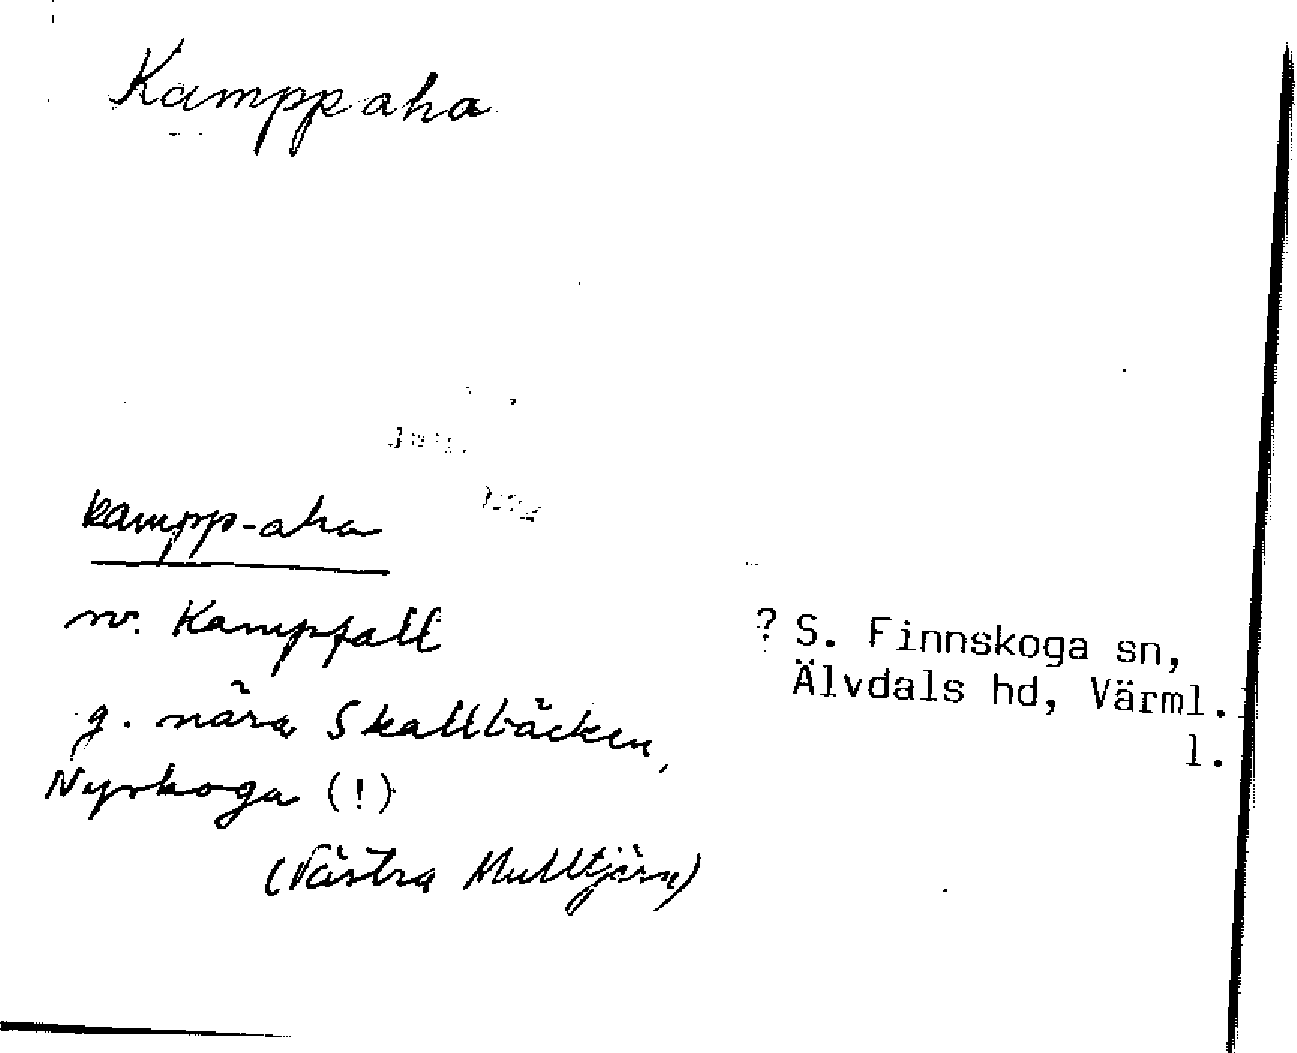 Kamppaha
kampp-aha
nv. Kampfall
g. nära Skallbäcken,
Nyskoga (!)
(Västra Mulltjärn)
? S. Finnskoga sn,
Älvdals hd, Värml.
l.